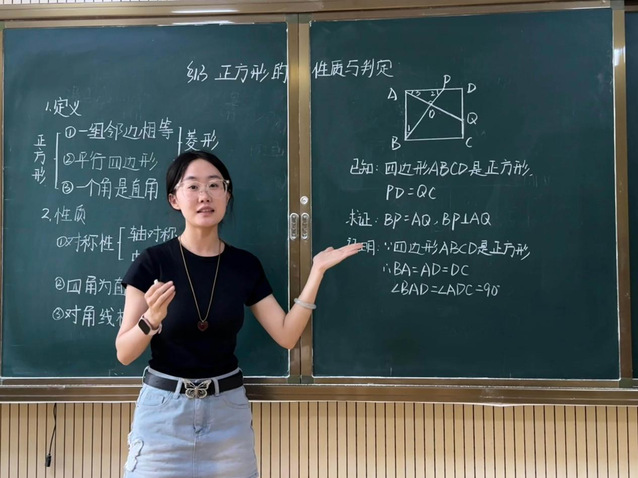 §1.3 正方形的性质与判定
1.定义
正方形
①一组邻边相等
②平行四边形
③一个角是直角
菱形
2.性质
①对称性
轴对称
②四角为直
③对角线
A P D
O Q
B C
已知:四边形ABCD是正方形.
PD=QC
求证:BP=AQ,BP⊥AQ
证明:∵四边形ABCD是正方形
∴BA=AD=DC
∠BAD=∠ADC=90°